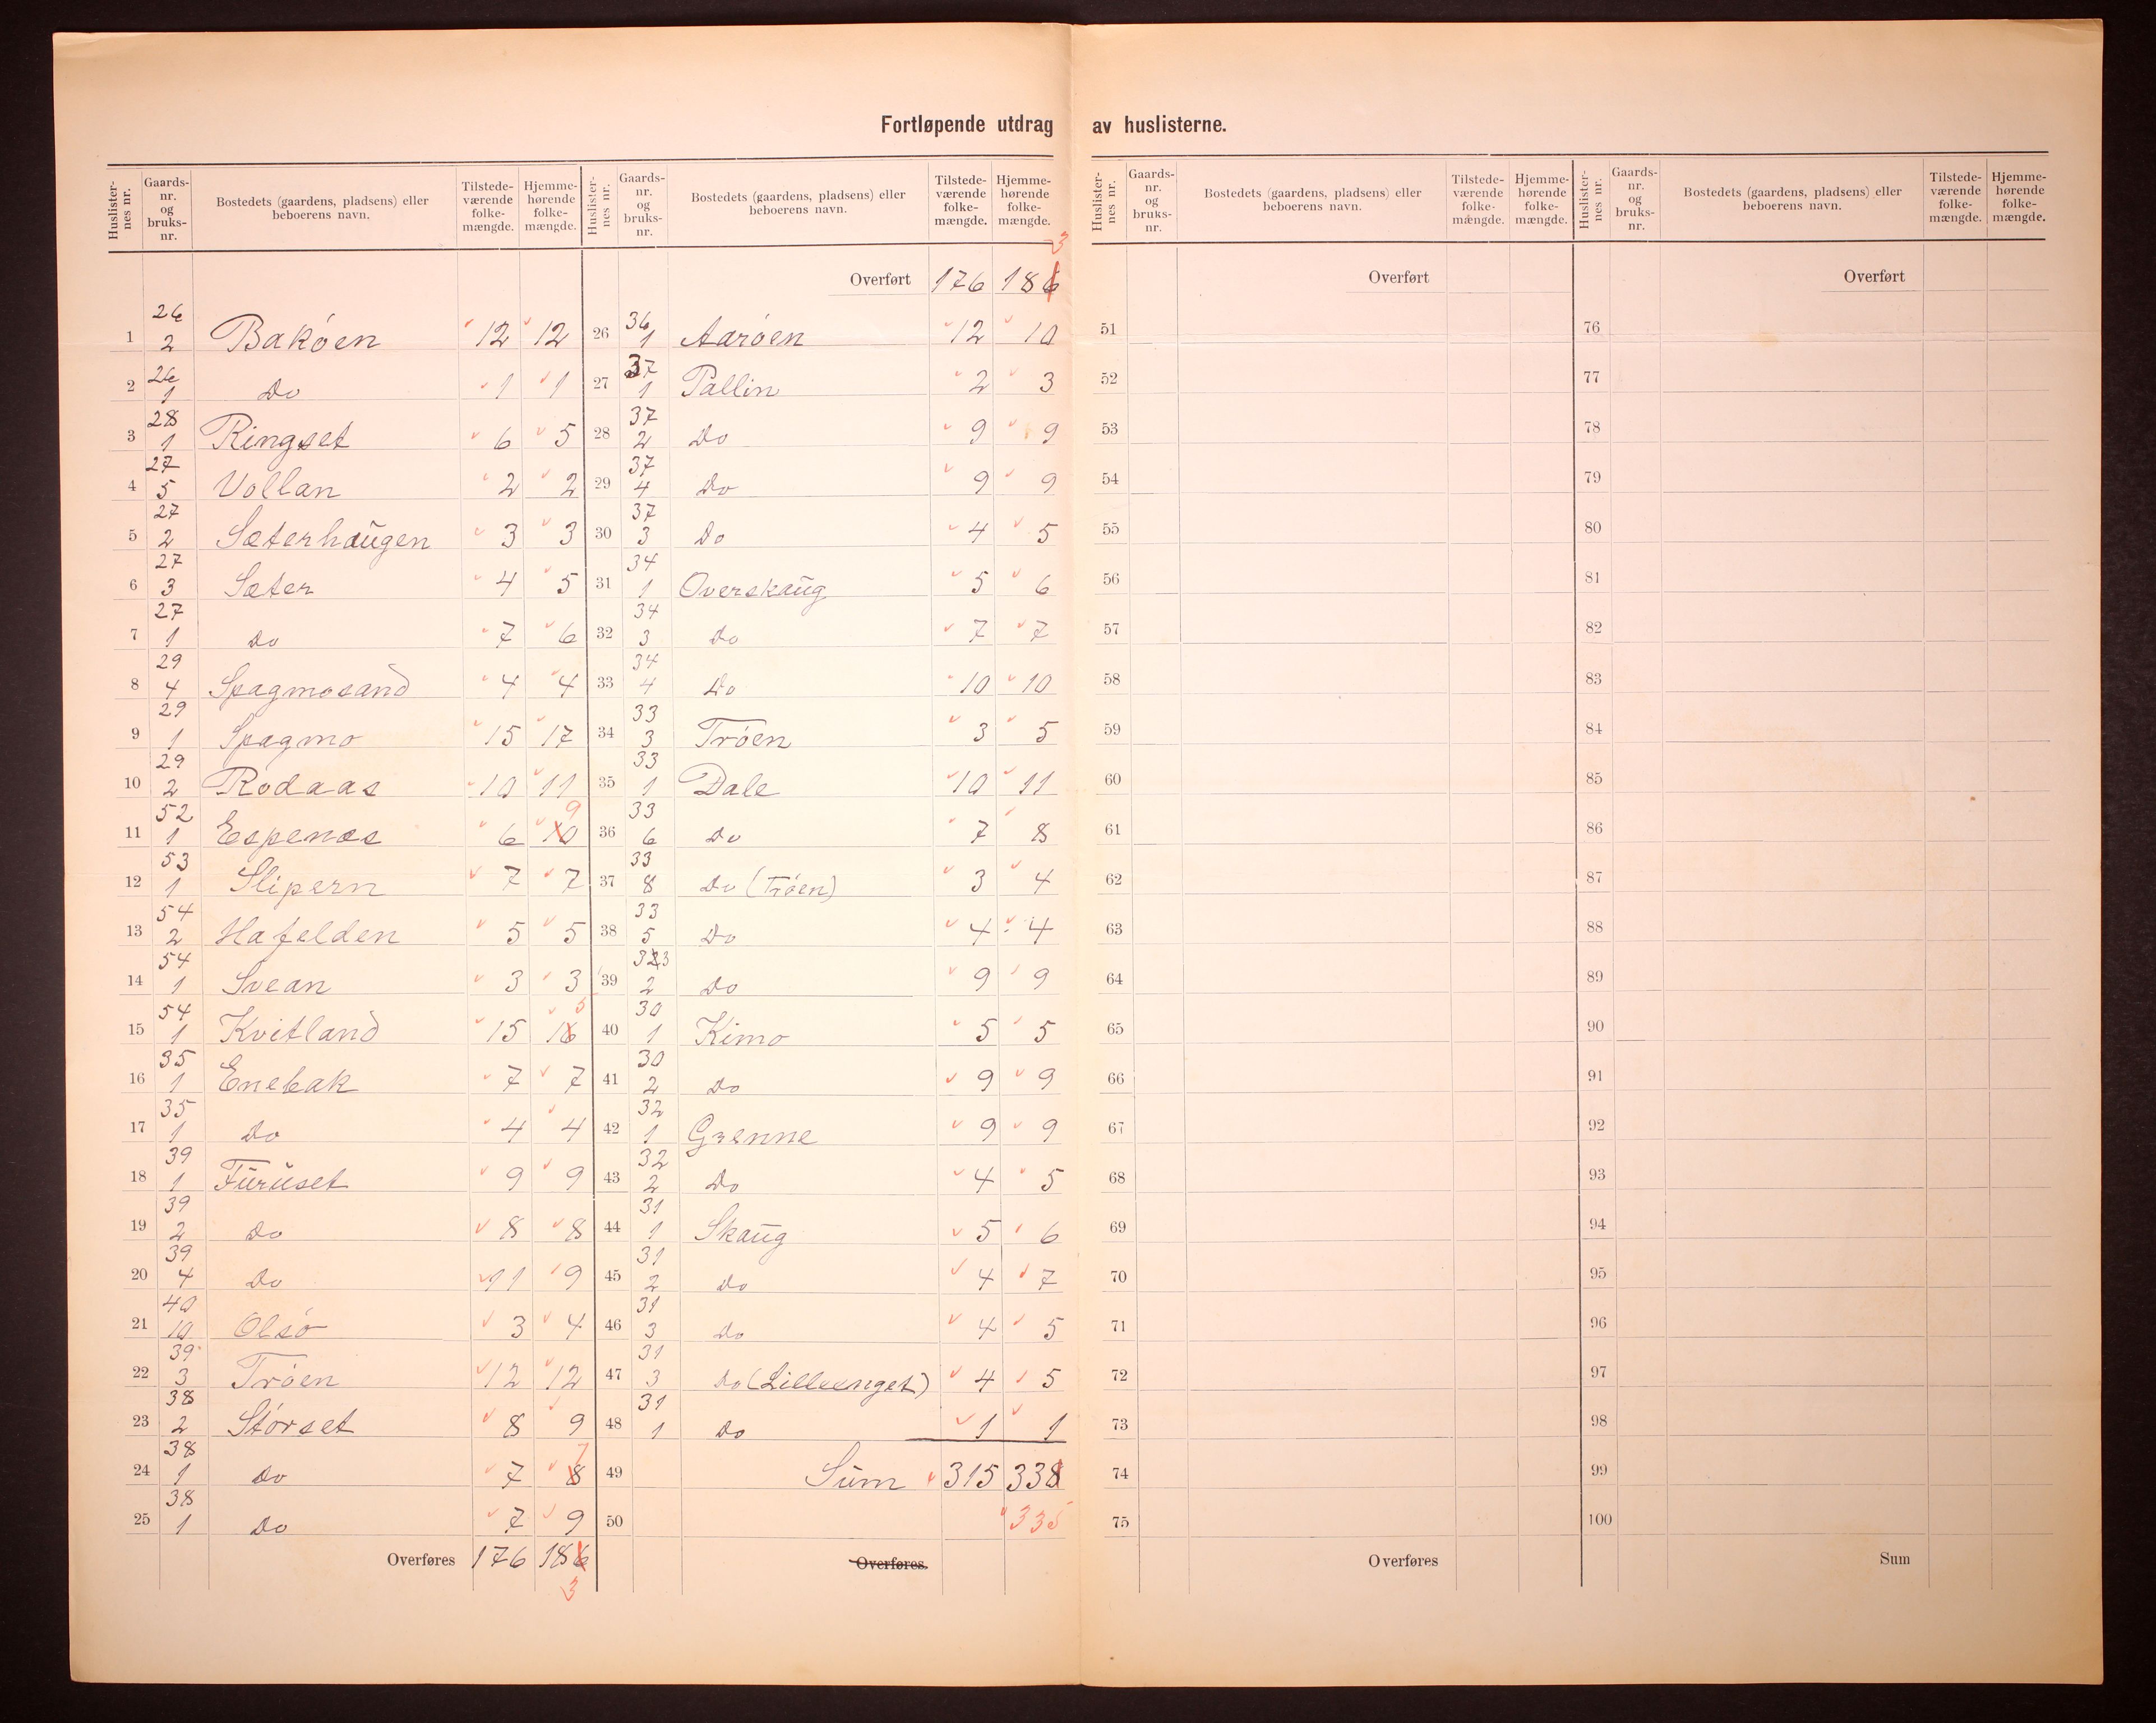 Fortløpende utdrag av huslisterne.
Huslisternes nr. | Gaardsnr. og bruksnr. | Bostedets (gaardens, pladsens) eller beboerens navn. | Tilstedeværende folkemængde. | Hjemmehørende folkemængde.
1 | 26/2 | Bakøen | 12 | 12
2 | 26/1 | Do | 1 | 1
3 | 28/1 | Ringset | 6 | 5
4 | 27/5 | Vollan | 2 | 2
5 | 27/2 | Sæterhaugen | 3 | 3
6 | 27/3 | Sæter | 4 | 5
7 | 27/1 | Do | 7 | 6
8 | 29/4 | Spagmosand | 4 | 4
9 | 29/1 | Spagmo | 15 | 17
10 | 29/2 | Rødaas | 10 | 11
11 | 52/1 | Espenes | 6 | 10 9
12 | 53/1 | Slipern | 7 | 7
13 | 54/2 | Hafelden | 5 | 5
14 | 54/1 | Svean | 3 | 3
15 | 54/1 | Kvitland | 15 | 16 5
16 | 35/1 | Enebak | 7 | 7
17 | 35/1 | Do | 4 | 4
18 | 39/1 | Furuset | 9 | 9
19 | 39/2 | Do | 8 | 8
20 | 39/4 | Do | 11 | 9
21 | 40/10 | Olsø | 3 | 4
22 | 39/3 | Trøen | 12 | 12
23 | 38/2 | Størset | 8 | 9
24 | 38/1 | Do | 7 | 8 7
25 | 38/1 | Do | 7 | 9
Overføres 176 | 186 3
Huslisternes nr. | Gaardsnr. og bruksnr. | Bostedets (gaardens, pladsens) eller beboerens navn. | Tilstedeværende folkemængde. | Hjemmehørende folkemængde.
Overført 176 | 186 3
26 | 36/1 | Aarøen | 12 | 10
27 | 37/1 | Pallin | 2 | 3
28 | 37/2 | Do | 9 | 9
29 | 37/4 | Do | 9 | 9
30 | 37/3 | Do | 4 | 5
31 | 34/1 | Overskaug | 5 | 6
32 | 34/3 | Do | 7 | 7
33 | 34/4 | Do | 10 | 10
34 | 33/3 | Trøen | 3 | 5
35 | 33/1 | Dale | 10 | 11
36 | 33/6 | Do | 7 | 8
37 | 33/8 | Do (Trøen) | 3 | 4
38 | 33/5 | Do | 4 | 4
39 | 323/2 | Do | 9 | 9
40 | 30/1 | Kimo | 5 | 5
41 | 30/2 | Do | 9 | 9
42 | 32/1 | Grenne | 9 | 9
43 | 32/2 | Do | 4 | 5
44 | 31/1 | Skaug | 5 | 6
45 | 31/2 | Do | 4 | 7
46 | 31/3 | Do | 4 | 5
47 | 31/3 | Do (Lilleenget) | 4 | 5
48 | 31/1 | Do | 1 | 1
49 | Sum | 315 | 338
50 | 335
Overføres.
Huslisternes nr. | Gaardsnr. og bruksnr. | Bostedets (gaardens, pladsens) eller beboerens navn. | Tilstedeværende folkemængde. | Hjemmehørende folkemængde.
Overført
51
52
53
54
55
56
57
58
59
60
61
62
63
64
65
66
67
68
69
70
71
72
73
74
75
Overføres
Huslisternes nr. | Gaardsnr. og bruksnr. | Bostedets (gaardens, pladsens) eller beboerens navn. | Tilstedeværende folkemængde. | Hjemmehørende folkemængde.
Overført
76
77
78
79
80
81
82
83
84
85
86
87
88
89
90
91
92
93
94
95
96
97
98
99
100
Sum